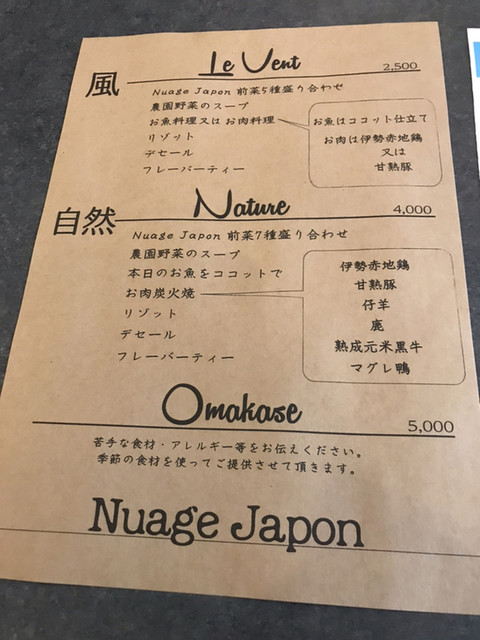 風
Le Vent
2,500
Nuage Japon 前菜5種盛り合わせ
農園野菜のスープ
お魚料理又は お肉料理
リゾット
デセール
フレーバーティー
お魚はココット仕立て
お肉は伊勢赤地鶏
又は
甘熟豚
自然
Nature
4,000
Nuage Japon 前菜7種盛り合わせ
農園野菜のスープ
本日のお魚をココットで
お肉炭火焼
リゾット
デセール
フレーバーティー
伊勢赤地鶏
甘熟豚
仔羊
鹿
熟成元米黒牛
マグレ鴨
Omakase
5,000
苦手な食材・アレルギー等をお伝えください。
季節の食材を使ってご提供させて頂きます。
Nuage Japon